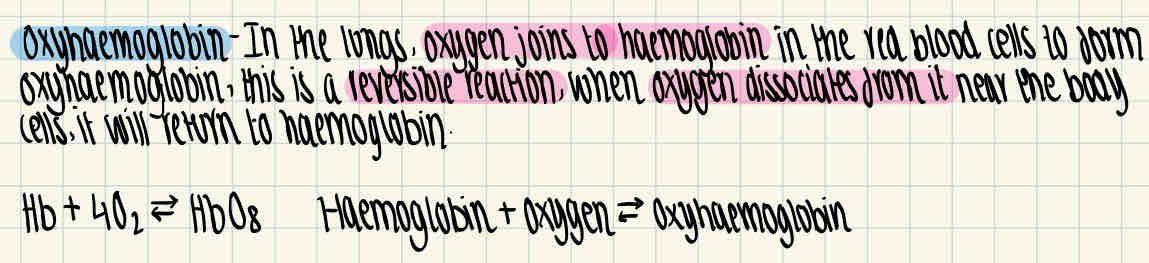 Oxyhaemoglobin - In the lungs, oxygen joins to haemoglobin in the red blood cells to form
oxyhaemoglobin, this is a reversible reaction, when oxygen dissociates from it near the body
cells, it will return to haemoglobin.
Hb + 4O₂ ⇌ HbO₈ Haemoglobin + Oxygen ⇌ Oxyhaemoglobin